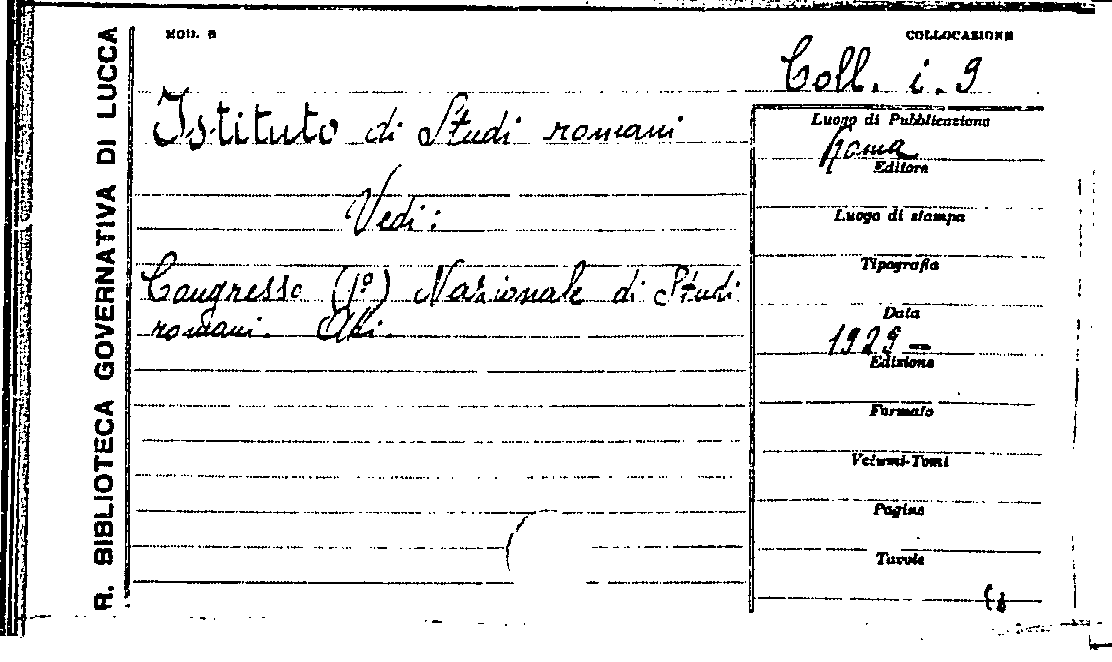 R. BIBLIOTECA GOVERNATIVA DI LUCCA
MOD. B
COLLOCAZIONE
Coll. i. 9
Istituto di Studi romani
Vedi:
Congresso (1º) Nazionale di Studi
romani. Atti.
Luogo di Pubblicazione
Roma
Editore
Luogo di stampa
Tipografia
Data
1929 -
Edizione
Formato
Volumi-Tomi
Pagine
Tavole